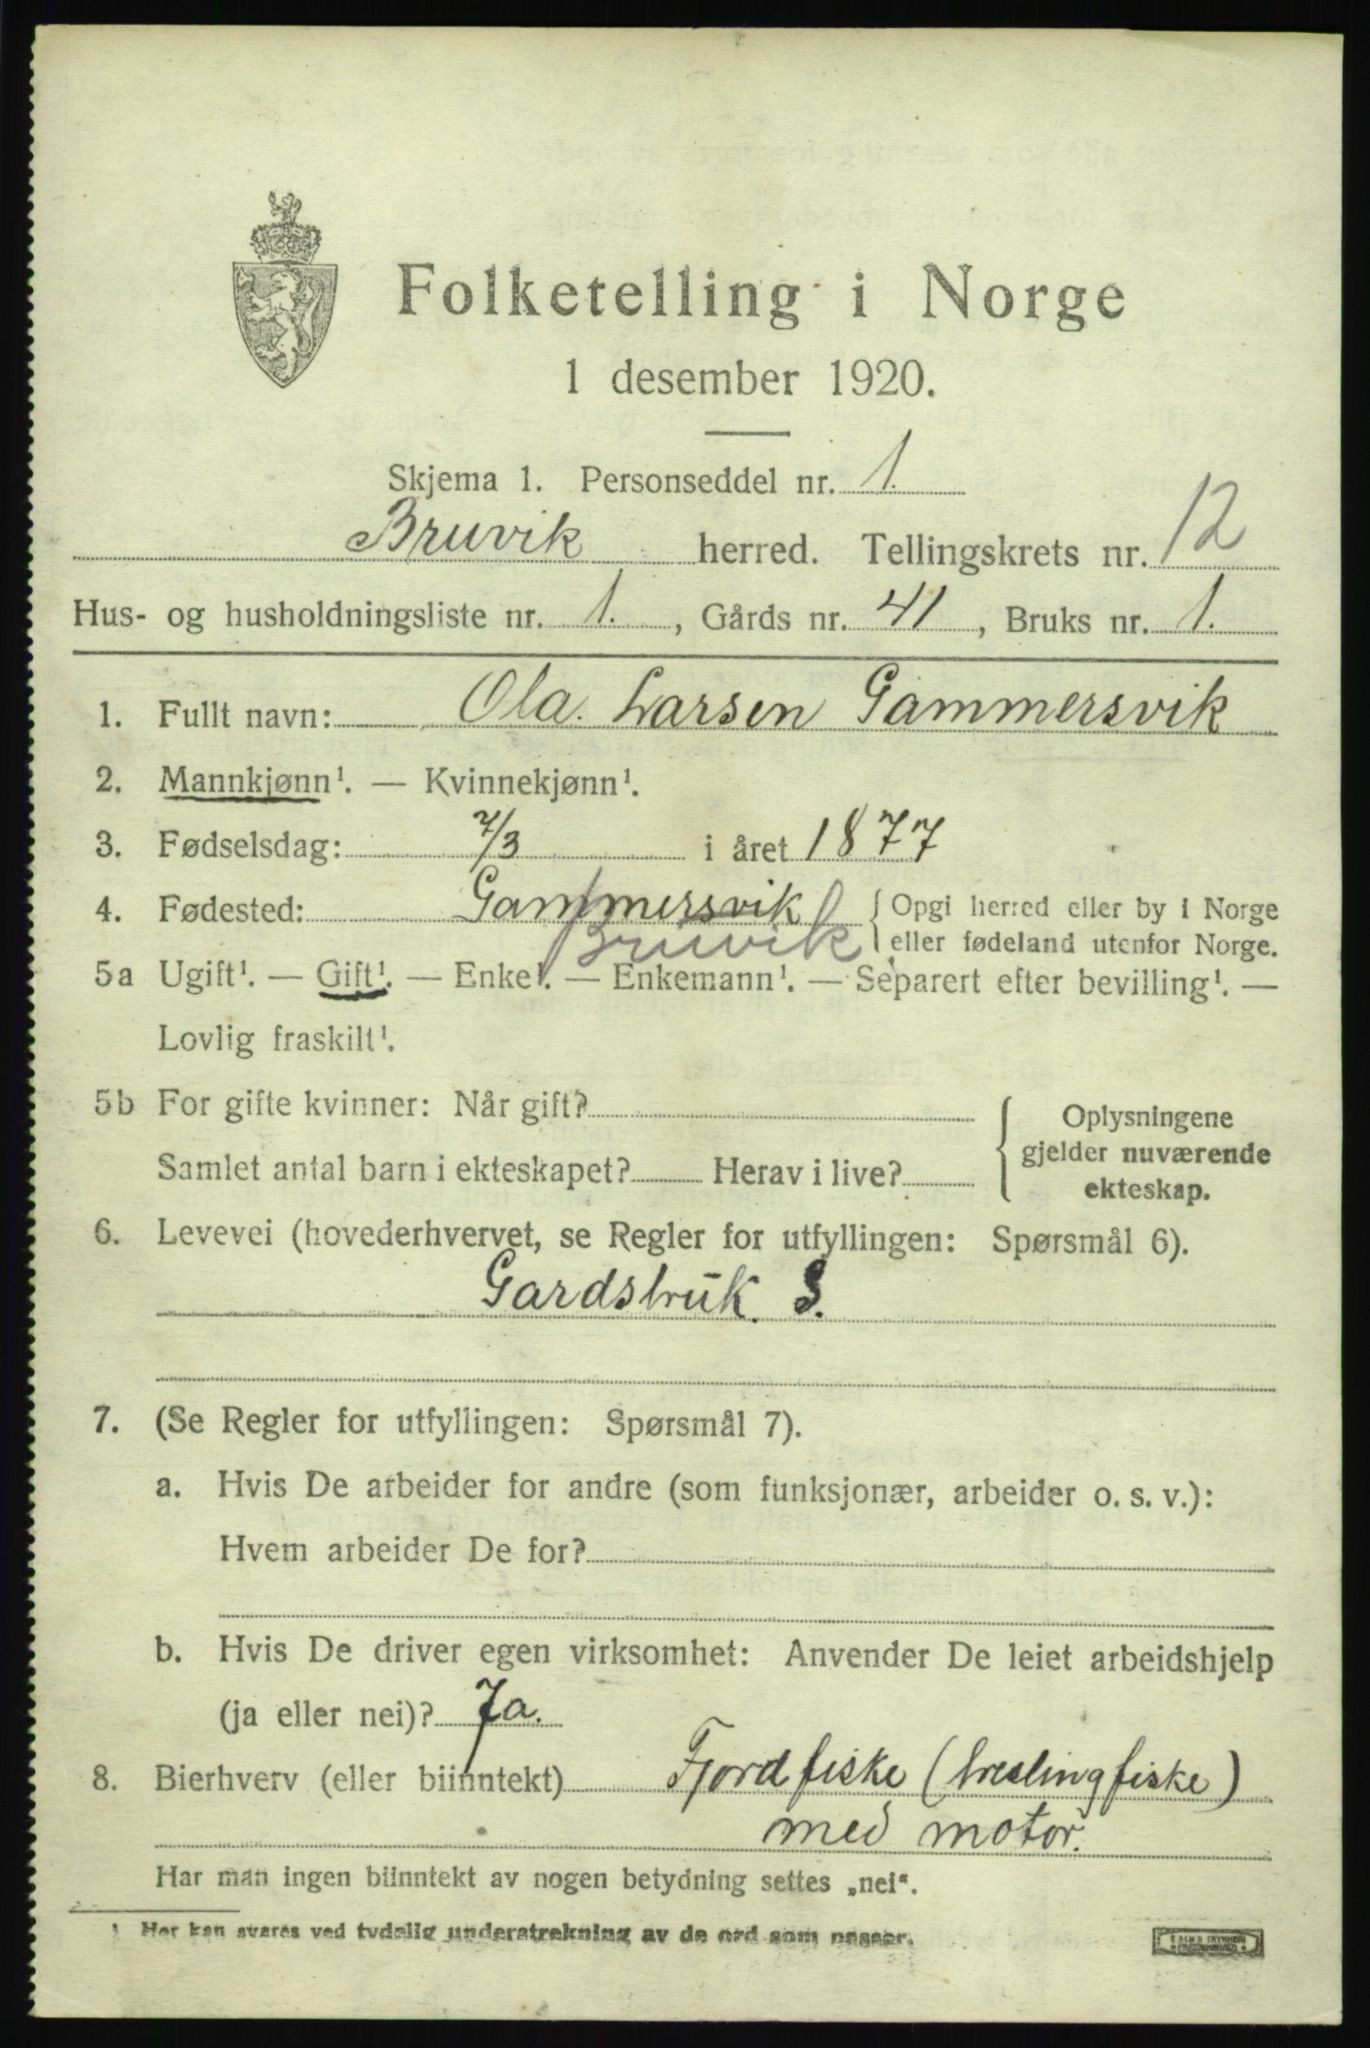 Folketelling i Norge
1 desember 1920.
Skjema 1. Personseddel nr. 1.
Bruvik herred. Tellingskrets nr. 12
Hus- og husholdningsliste nr. 1. , Gårds nr. 41 , Bruks nr. 1.
1. Fullt navn: Ola Larsen Gammersvik
2. Mannkjønn¹. — Kvinnekjønn¹.
3. Fødselsdag: 7/3 i året 1877
4. Fødested: Gammersvik { Opgi herred eller by i Norge
Bruvik eller fødeland utenfor Norge.
5a Ugift¹. — Gift¹. — Enke¹. — Enkemann¹. — Separert efter bevilling¹. —
Lovlig fraskilt¹.
5b For gifte kvinner: Når gift? { Oplysningene
gjelder nuværende
Samlet antal barn i ekteskapet? Herav i live?
ekteskap.
6. Levevei (hovederhvervet, se Regler for utfyllingen: Spørsmål 6).
Gardsbruk. S.
7. (Se Regler for utfyllingen: Spørsmål 7).
a. Hvis De arbeider for andre (som funksjonær, arbeider o. s. v.):
Hvem arbeider De for?
b. Hvis De driver egen virksomhet: Anvender De leiet arbeidshjelp
(ja eller nei)? Ja.
8. Bierhverv (eller biinntekt) Fjordfiske (breslingfiske)
med motor.
Har man ingen biinntekt av nogen betydning settes „nei“.
¹ Her kan svares ved tydelig understrekning av de ord som passer.